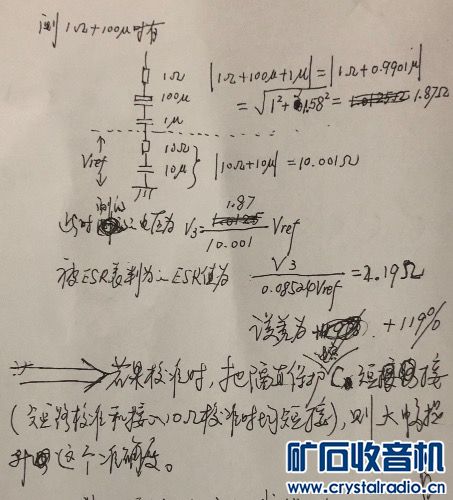 测1Ω+100μ时有
1Ω
100μ
1μ
10Ω
10μ
Vref
|1Ω+100μ+1μ|=|1Ω+0.9901μ|
=√1²+1.58²= 1.87Ω
|10Ω+10μ|=10.001Ω
此时测得电压为 V3= 1.87/10.001 Vref
被ESR表判为ESR值为 V3/0.08524Vref =2.19Ω
误差为 +119%
若果校准时，把隔直保护C短接
(短路校准和接入10Ω校准时均短接)，则大幅提
升这个准确度。
矿石收音机
www.crystalradio.cn